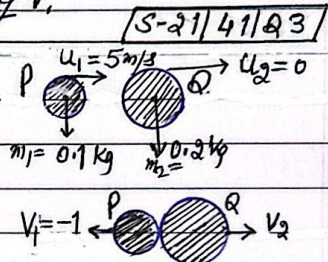 S-21/41/Q3
P u₁=5m/s Q u₂=0
m₁= 0.1 kg m₂= 0.2 kg
P Q
V₁=-1 V₂